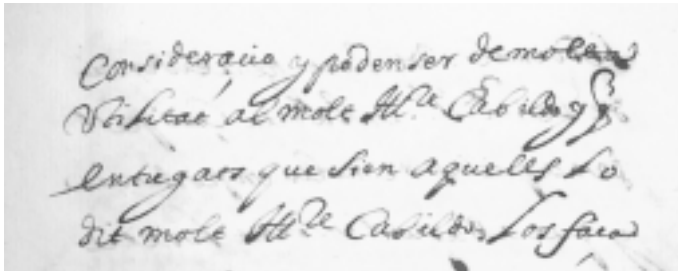 Consideraçio y poden ser de molta
Utilitat al molt Ill.e Cabildo y q
entregats que sien aquells Lo
dit molt Ill.e Cabildo, Los fara